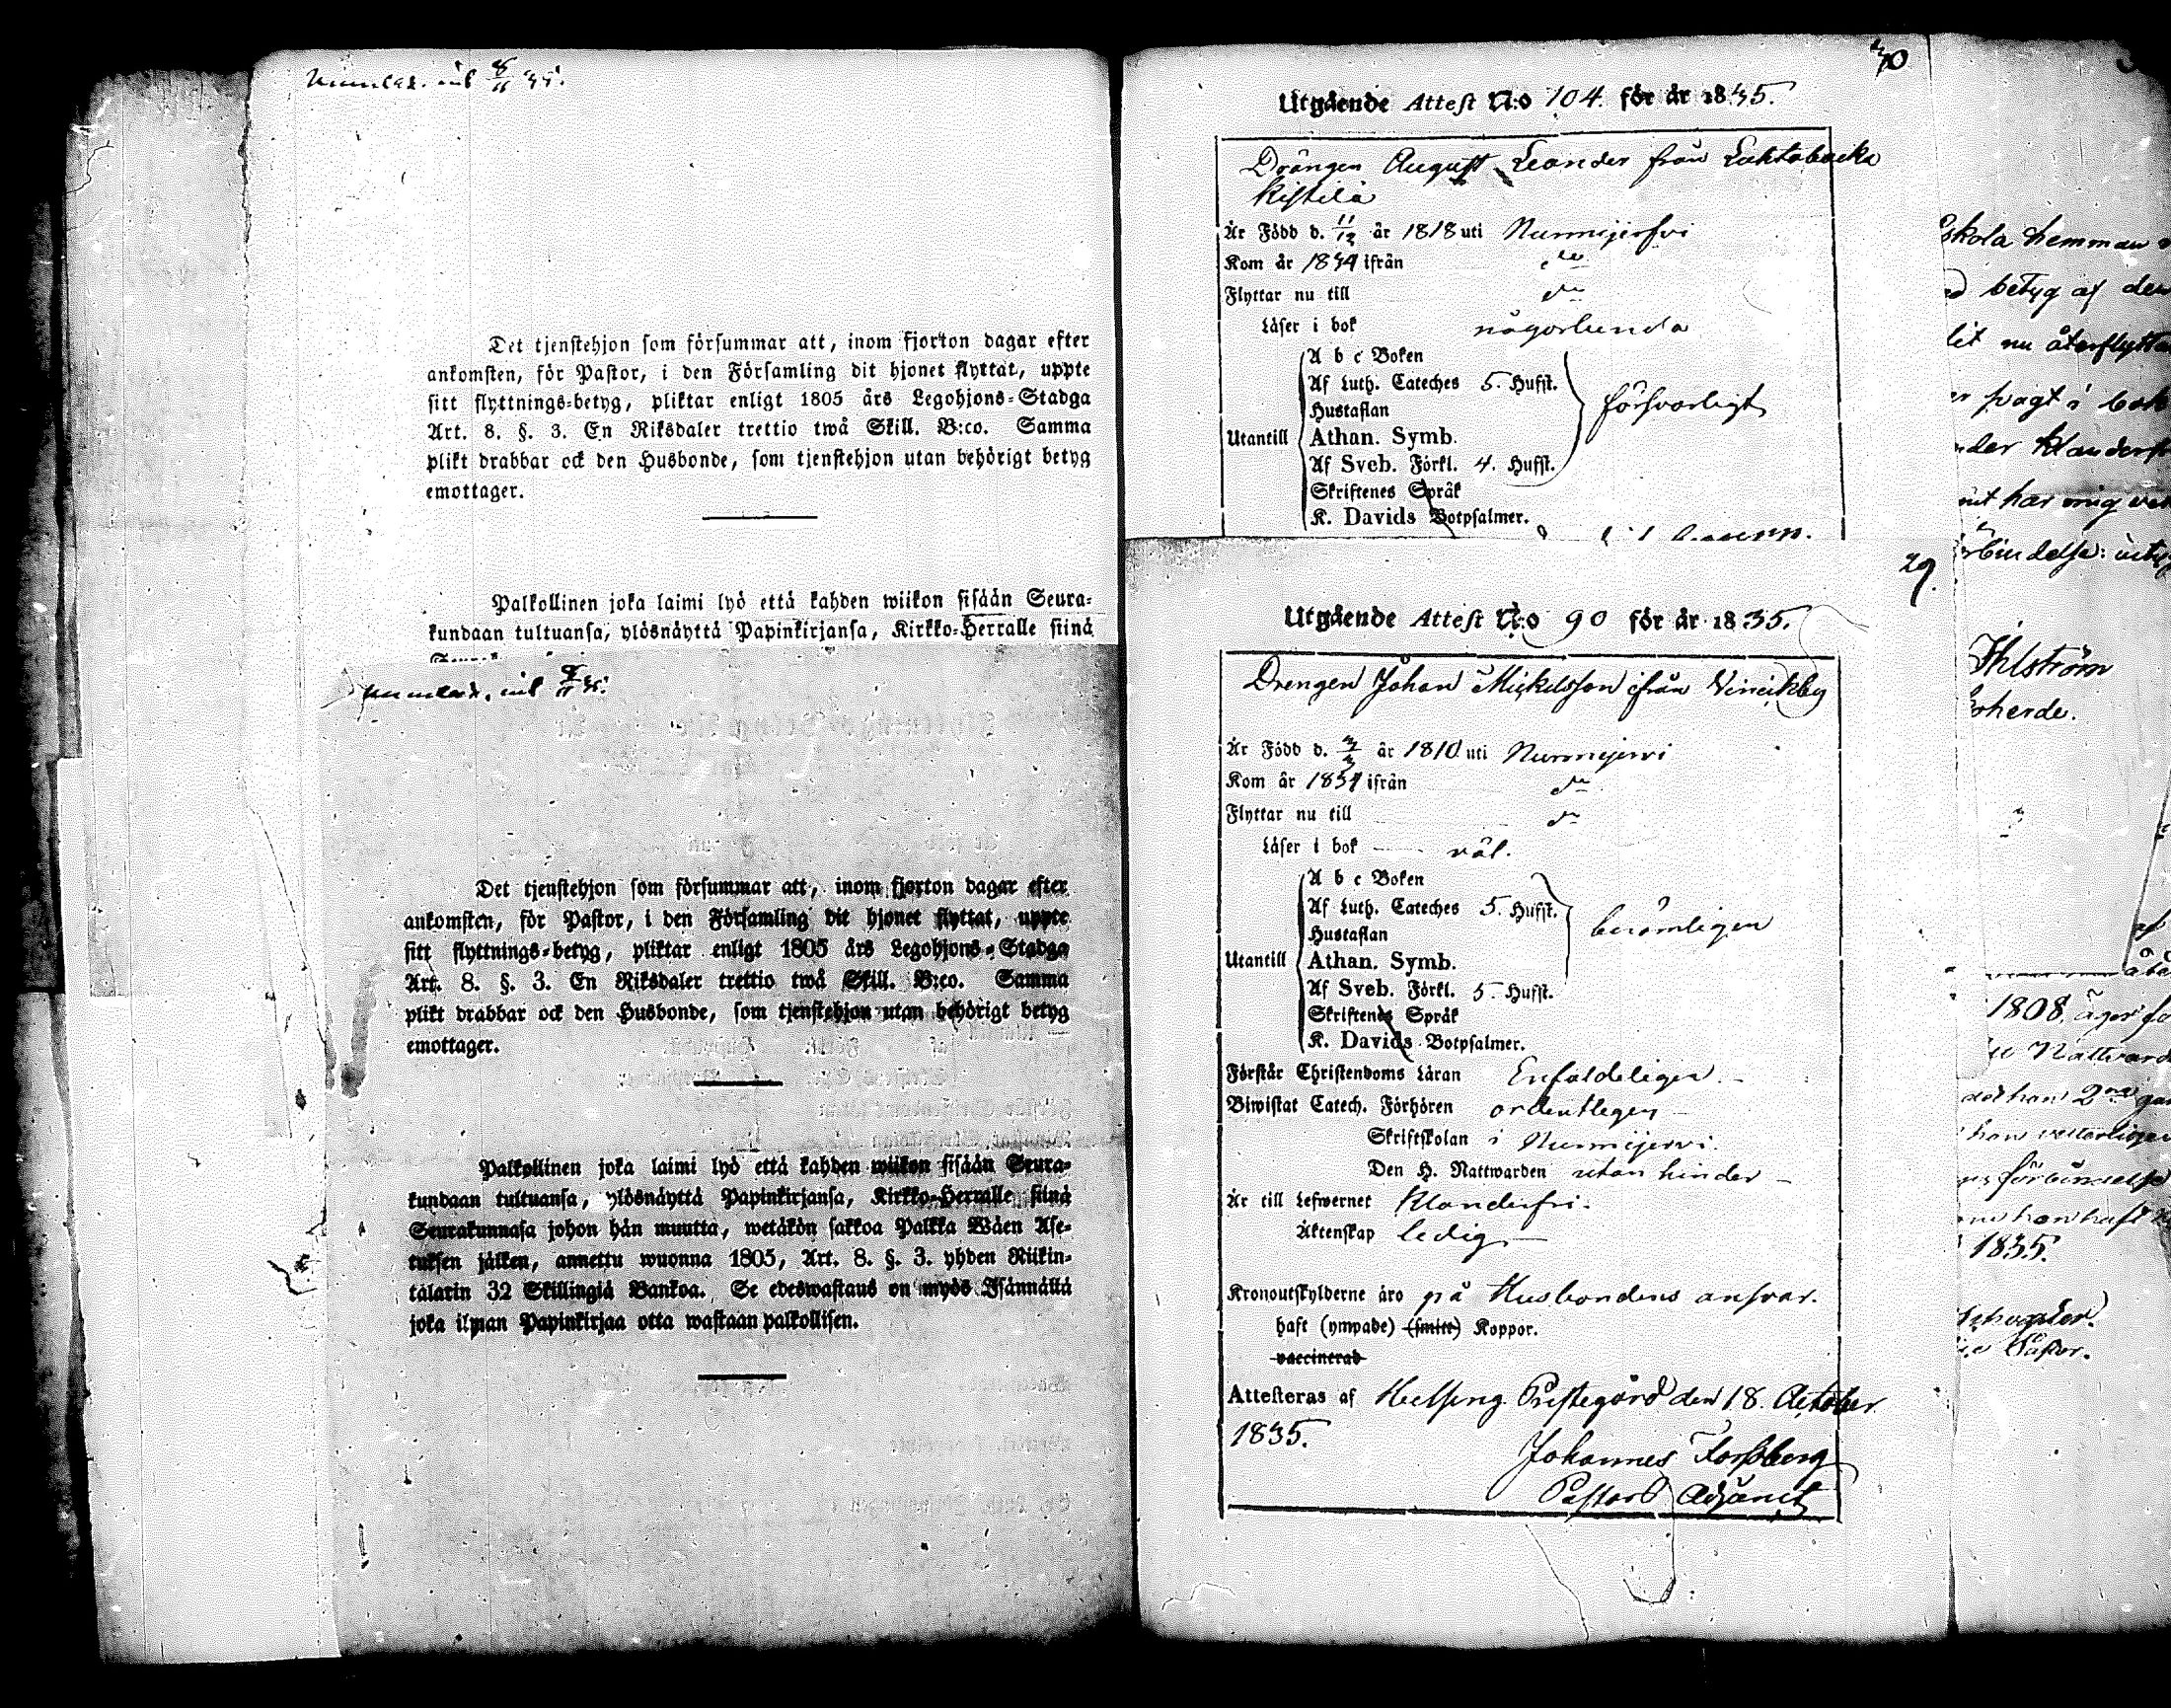 8/11 35.
Det tjenstehjon som försummar att, inom fjorton dagar efter
ankomsten, för Pastor, i den Församling dit hjonet flyttat, uppte
sitt flyttnings-betyg, pliktar enligt 1805 års Legohjons-Stadga
Art. 8. §. 3. En Riksdaler trettio twå Skill. B:co. Samma
plikt drabbar ock den Husbonde, som tjenstehjon utan behörigt betyg
emottager.
Palkollinen joka laimi lyö että kahden wiikon sisään Seura-
kundaan tultuansa, ylösnäyttä Papinkirjansa, Kirkko-Herralle siinä
Det tjenstehjon som försummar att, inom fjorton dagar efter
ankomsten, för Pastor, i den Församling dit hjonet flyttat, uppte
sitt flyttnings-betyg, pliktar enligt 1805 års Legohjons-Stadga
Art. 8. §. 3. En Riksdaler trettio twå Skill. B:co. Samma
plikt drabbar ock den Husbonde, som tjenstehjon utan behörigt betyg
emottager.
Palkollinen joka laimi lyö että kahden wiikon sisään Seura-
kundaan tultuansa, ylösnäyttä Papinkirjansa, Kirkko-Herralle siinä
Seurakunnasa johon hän muutta, wetäkön sakkoa Palkka Wäen Ase-
tuksen jälken, annettu wuonna 1805, Art. 8. §. 3. yhden Riikin-
talarin 32 Skillingiä Bankoa. Se edeswastaus on myös Isännällä
joka ilman Papinkirjaa otta wastaan palkollisen.
30
Utgående Attest N:o 104. för år 1835.
Drängen August Leander från Lahtabacka
Kistilä
Är Född d. 11/12 år 1818 uti Nurmijerfvi
Kom år 1834 ifrån do
Flyttar nu till do
Läser i bok någorlunda
A b c Boken
Af Luth. Cateches 5. Hufst.
Hustaflan
Utantill Athan. Symb. försvarligt
Af Sveb. Förkl. 4. Hufst.
Skriftenes Språk
K. Davids Botpsalmer.
29.
Utgående Attest N:o 90 för år 1835.
Drengen Johan Mickelsson ifrån
Är Född d. år 1810 uti Nurmijervi
Kom år 1834 ifrån do
Flyttar nu till do
Läser i bok väl.
A b c Boken
Af Luth. Cateches 5. Hufst.
Hustaflan
Utantill Athan. Symb. berömligen
Af Sveb. Förkl. 5. Hufst.
Skriftenes Språk
K. Davids Botpsalmer.
Förstår Christendoms Läran Enfaldeligen.
Biwistat Catech. Förhören ordentlegen
Skriftskolan i Nurmijervi.
Den H. Nattwarden utan hinder
Är till Lefwernet Klanderfri.
Äktenskap ledig
Kronoutskylderne äro på Husbondens ansvar.
haft (ympade) (smitt) Koppor.
vaccinerad
Attesteras af Helsing Prestegård den 18. October
1835.
Johannes Forssberg
Pastors Adjunct
Eskola hemman
betyg af den
nu återflytta
pagt i bok
klanderfr
har mig
förbindelse:
Ahlström
1808, äger
Nattvard
han 2
han
förbindelse
han haft
1835.
Pastor.